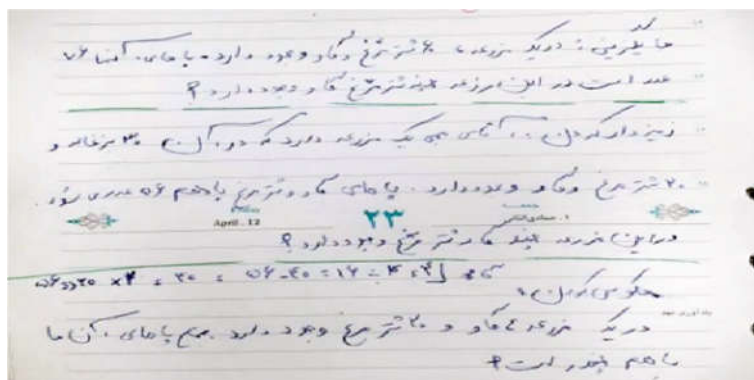 جایگزینی: در یک مزرعه ۲۰ شتر مرغ و گاو وجود دارد. پاهای آنها ۵۶
عدد است در این مزرعه چند شتر مرغ گاو وجود دارد؟
زمینه دار کردن: آقای یک مزرعه دارد که در آن ۳۰ مرغابی و
۲۰ شتر مرغ و گاو وجود دارد. پاهای گاو و شتر مرغ با هم ۵۶ عدد می شود.
April . 12 ۲۳ ۱. جمادی الثانی
در این مزرعه چند گاو و شتر مرغ وجود دارد؟
۵۶ ۲۰ × ۲ = ۴۰ = ۵۶-۴۰ = ۱۶ ÷ ۴ = ۴
معکوس کردن:
در یک مزرعه ۴ گاو و ۲۰ شتر مرغ وجود دارد جمع پاهای آن ها
با هم چقدر است؟